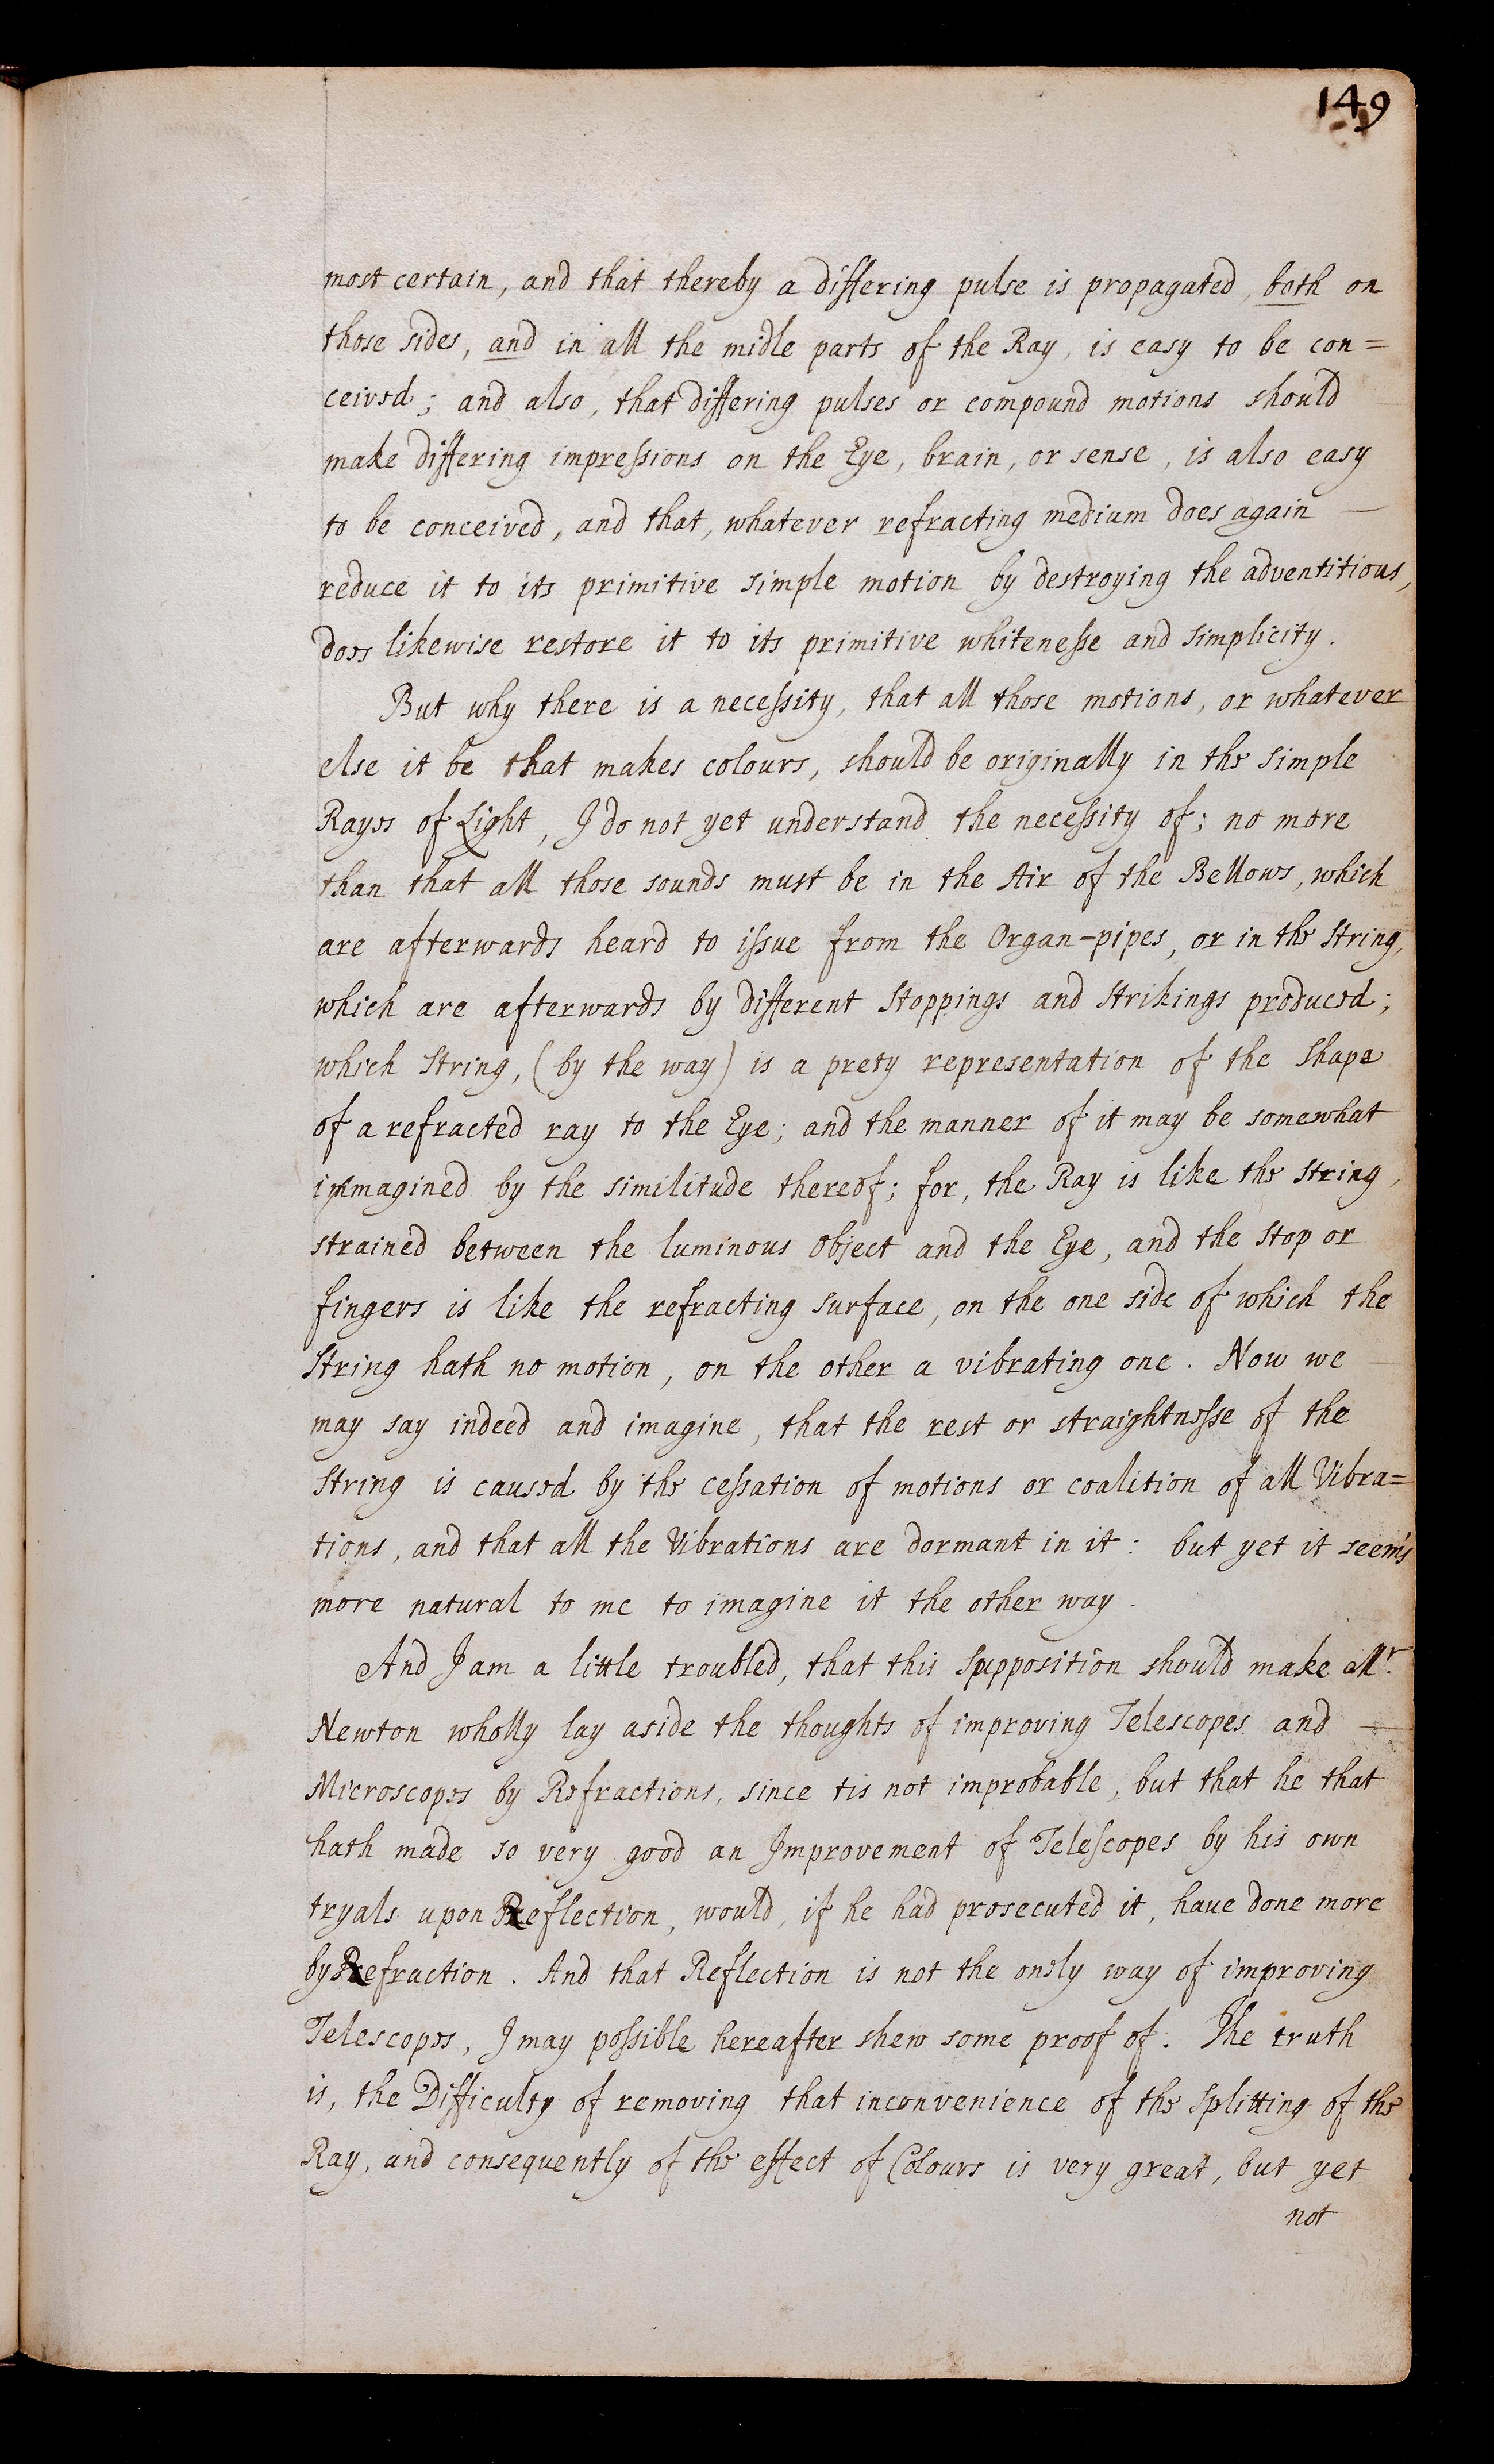 149
most certain, and that thereby a differing pulse is propagated, both on
those sides, and in all the midle parts of the Ray, is easy to be con=
ceived; and also, that differing pulses or compound motions should
make differing impressions on the Eye, brain, or sense, is also easy
to be conceived, and that, whatever refracting medium does again —
reduce it to its primitive simple motion by destroying the adventitious,
does likewise restore it to its primitive whitenesse and simplicity.
But why there is a necessity, that all those motions, or whatever
else it be that makes colours, should be originally in the simple
Rayes of Light, I do not yet understand the necessity of; no more
than that all those sounds must be in the Air of the Bellows, which
are afterwards heard to issue from the Organ-pipes, or in the String,
which are afterwards by different stoppings and strikings produced;
which string, (by the way) is a prety representation of the shape
of a refracted ray to the Eye; and the manner of it may be somewhat
immagined by the similitude thereof; for, the Ray is like the string,
strained between the luminous object and the Eye, and the stop or
fingers is like the refracting surface, on the one side of which the
string hath no motion, on the other a vibrating one. Now we —
may say indeed and imagine, that the rest or straightnesse of the
string is caused by the cessation of motions or coalition of all Vibra=
tions, and that all the Vibrations are dormant in it: but yet it seems
more natural to me to imagine it the other way.
And I am a little troubled, that this supposition should make Mr.
Newton wholly lay aside the thoughts of improving Telescopes and —
Microscopes by Refractions, since tis not improbable, but that he that
hath made so very good an Improvement of Telescopes by his own
tryals upon Reflection, would, if he had prosecuted it, have done more
by Refraction. And that Reflection is not the onely way of improving
Telescopes, I may possible hereafter shew some proof of. The truth
is, the Difficulty of removing that inconvenience of the splitting of the
Ray, and consequently of the effect of Colours is very great, but yet
not